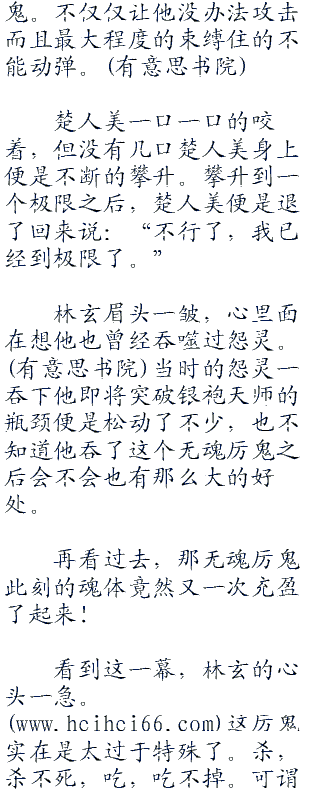 鬼。不仅仅让他没办法攻击
而且最大程度的束缚住的不
能动弹。(有意思书院)
楚人美一口一口的咬
着，但没有几口楚人美身上
便是不断的攀升。攀升到一
个极限之后，楚人美便是退
了回来说：“不行了，我已
经到极限了。”
林玄眉头一皱，心里面
在想他也曾经吞噬过怨灵。
(有意思书院)当时的怨灵一
吞下他即将突破银袍天师的
瓶颈便是松动了不少，也不
知道他吞了这个无魂厉鬼之
后会不会也有那么大的好
处。
再看过去，那无魂厉鬼
此刻的魂体竟然又一次充盈
了起来！
看到这一幕，林玄的心
头一急。
(www.hcihci66.com)这厉鬼
实在是太过于特殊了。杀，
杀不死，吃，吃不掉。可谓